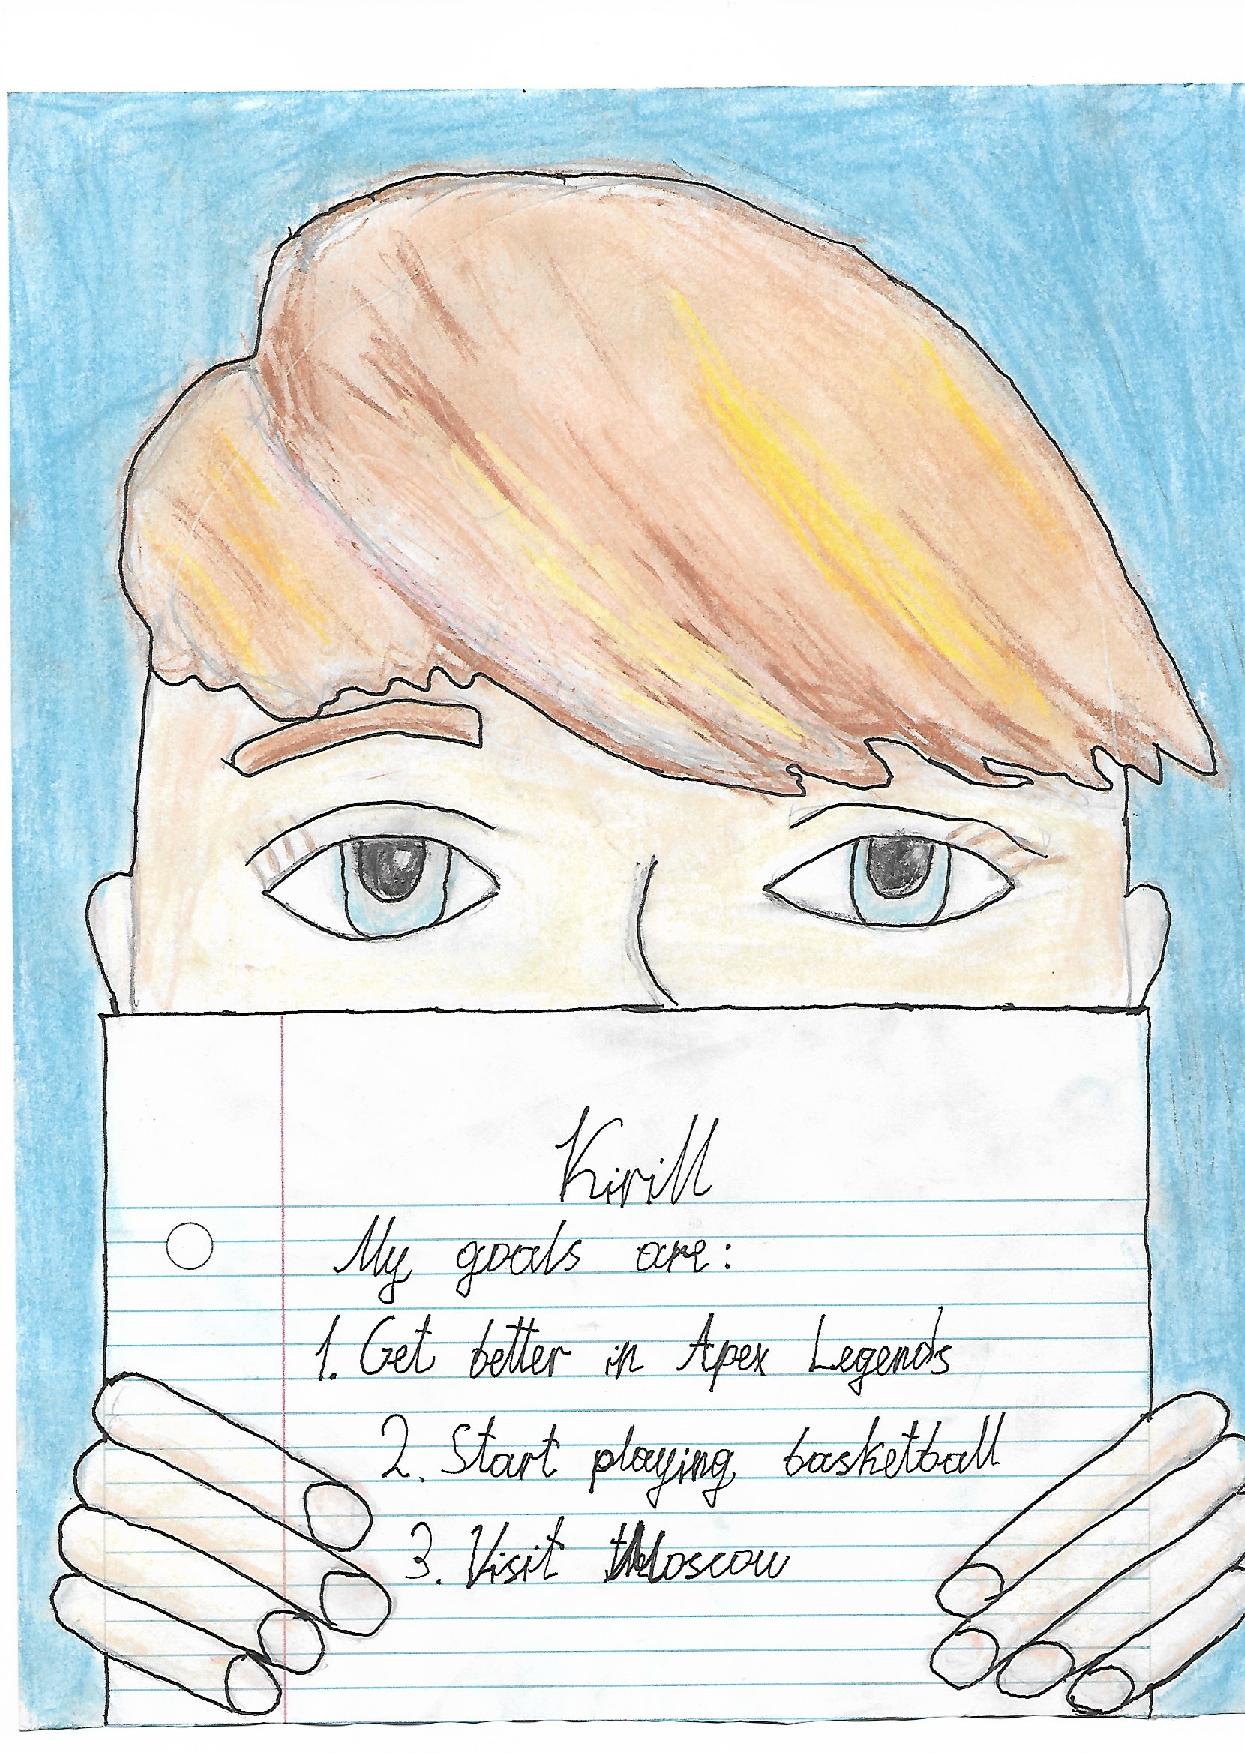 Kirill
My goals are:
1. Get better in Apex Legends
2. Start playing basketball
3. Visit Moscow